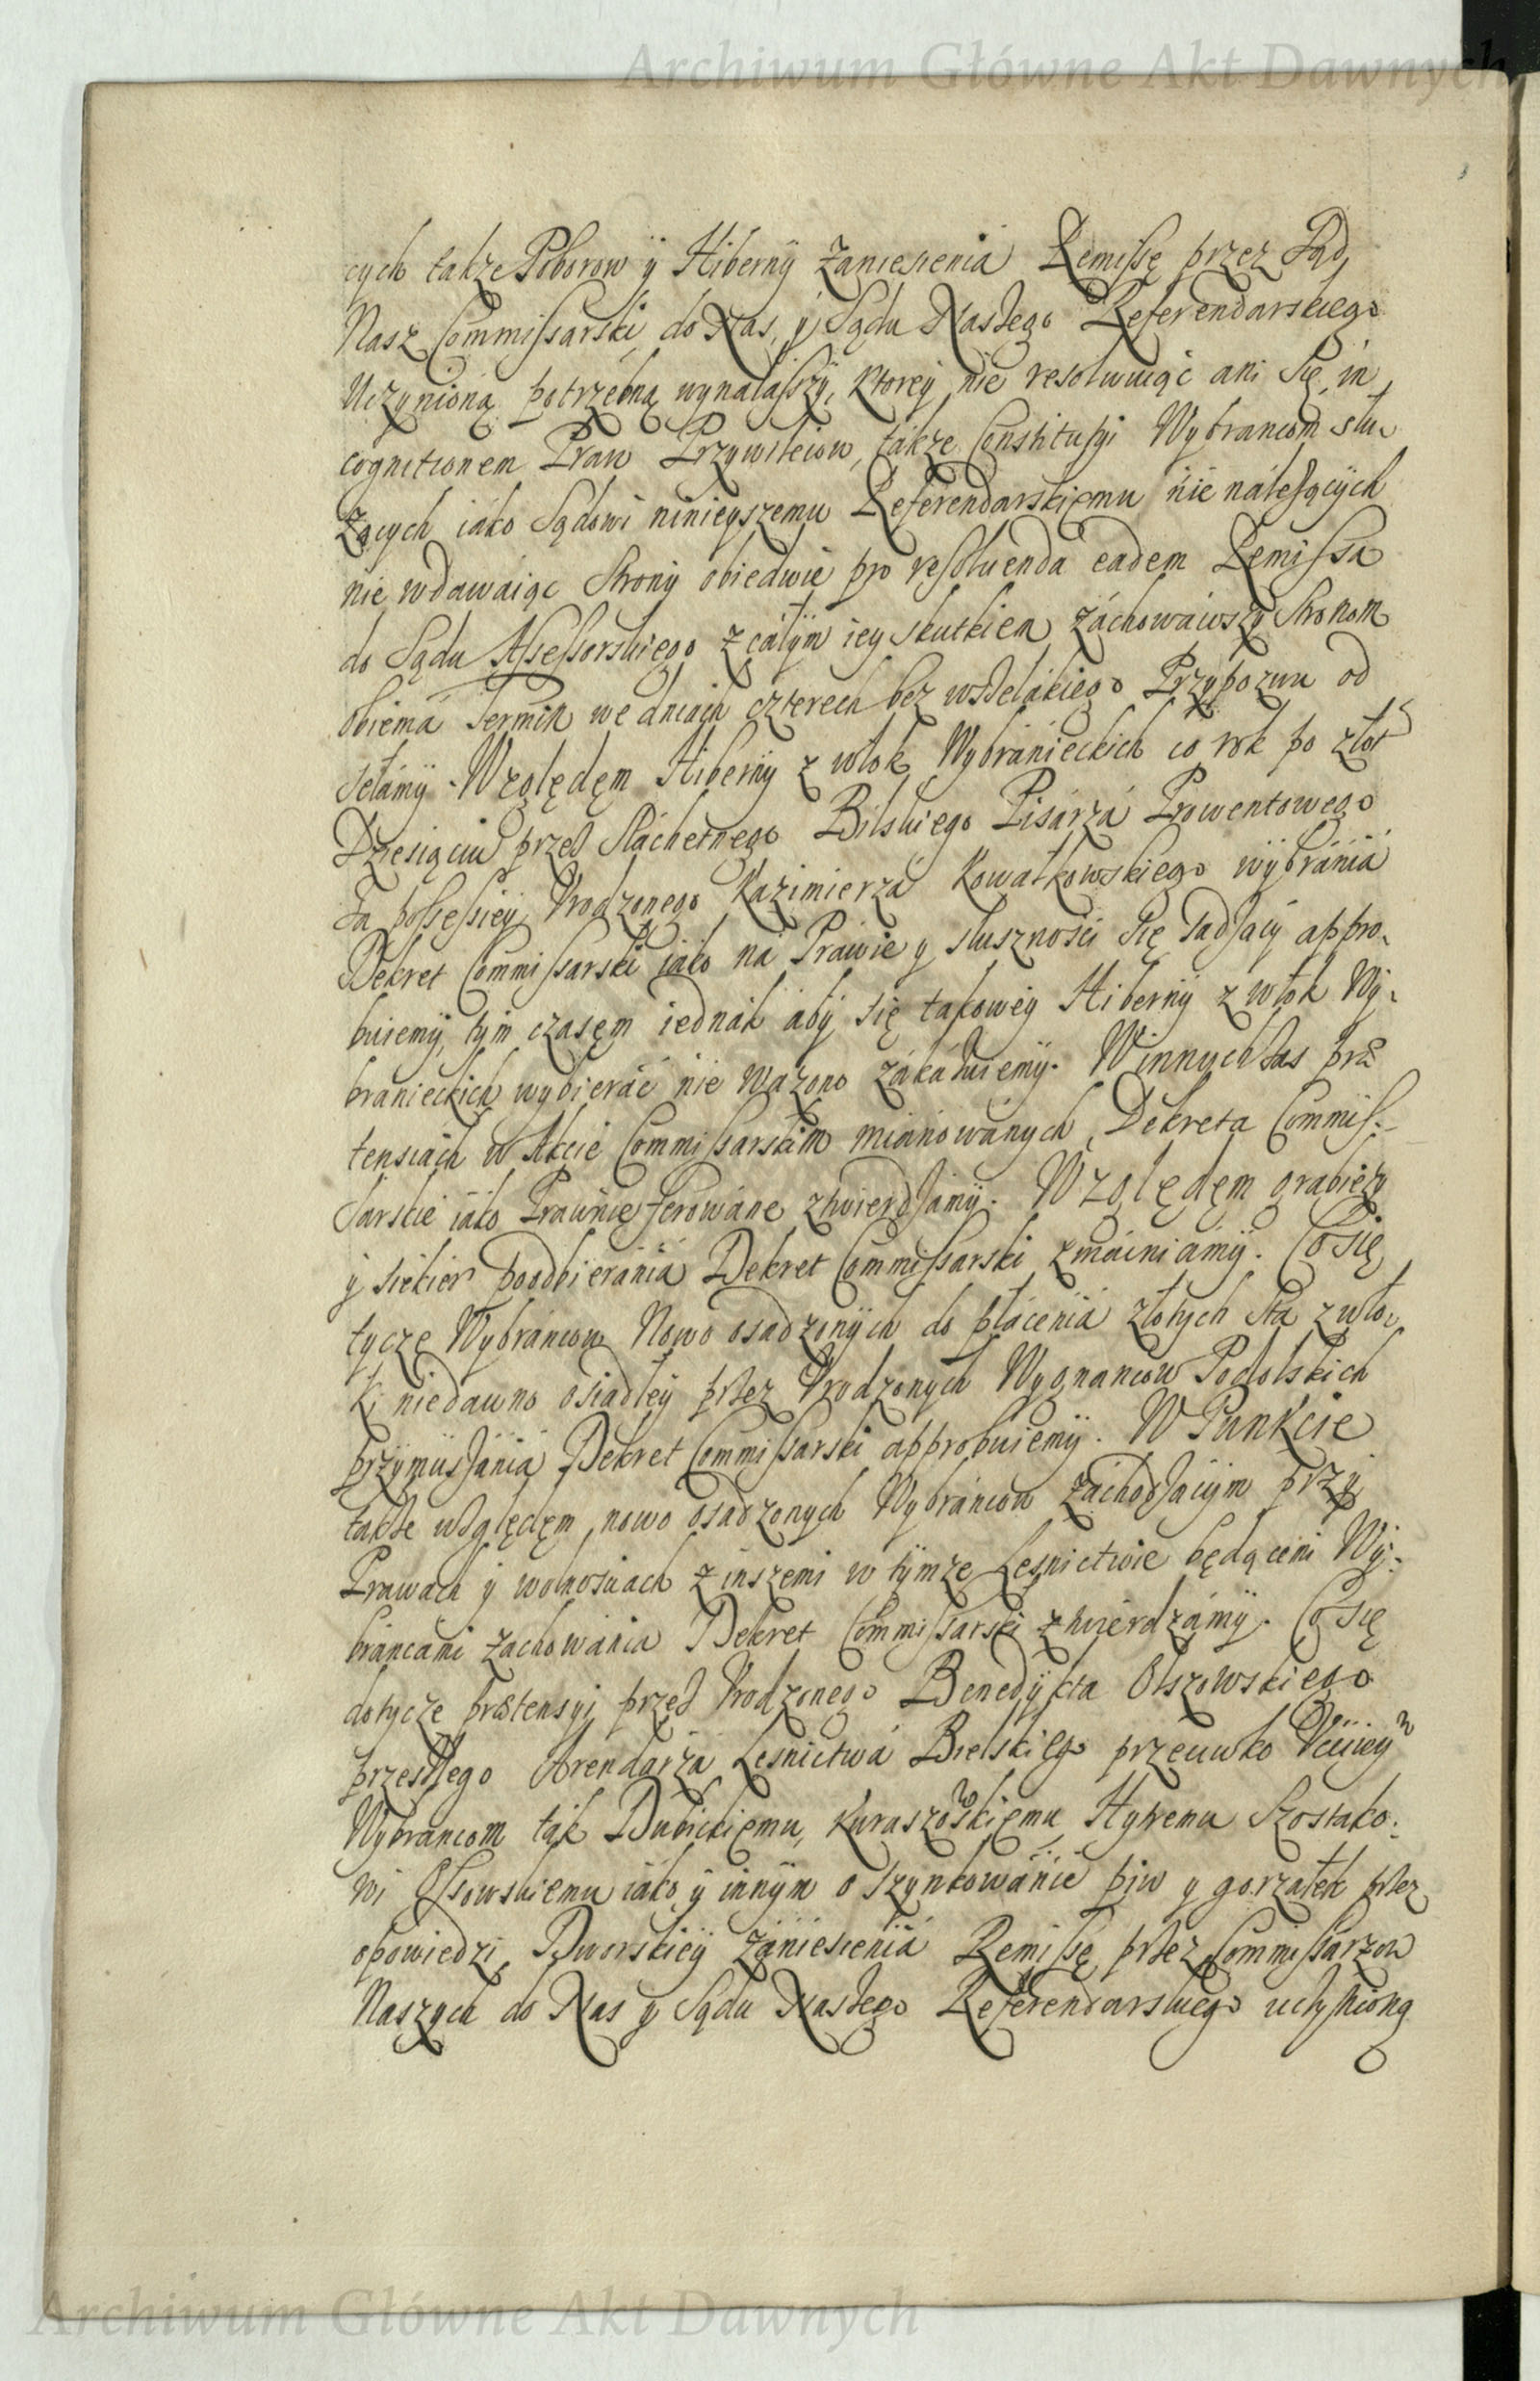 Archiwum Główne Akt Dawnych
cych takze Poborow ÿ Hibernÿ zaniesienia Remissę przez Sąd
Nasz Commissarski do Nas, ÿ Sądu Naszego Referendarskiego
Uczynioną potrzebną wynalaszÿ, ktorey nie resolwuiąc ani Się in
cognitionem Praw Przywileiow, także Constitucÿi Wybrancom słu-
żących iáko Sądowi ninieyszemu Referendarskiemu nie náleżącÿch
nie wdawaiąc Stronÿ obiedwie pro resoluenda eadem Remissa
do Sądu Assessorskiego z całÿm iey skutkiem záchowáwszy Stronom
obiemá Termin we dniach czterech bez wszelákiego Przypozwu od
sełámÿ. Względęm Hibernÿ z włok Wybránieckich co rok po złot
Dziesiąciu przez Sláchetnego Bilskiego Pisárzá Prowentowego
Za possessiey Urodzonego Kazimierzá Kowalkowskiego wÿbránia
Dekret Commissarski iáko ná Práwie y słusznosci Się sadzącÿ appro-
buiemÿ, tÿm czasęm iednák ábÿ się takowéy Hibernÿ z włok Wÿ-
branieckich wybieráć nie ważono zákázuiemÿ. W innych zas præ
tensiách w Akcie Commissarskim miánowánych Dekreta Commis-
sarskie iáko Práwnie ferowáne ztwierdzamÿ. Względęm grabieży
ÿ siekier poodbieránia Dekret Commissarski zmácniámÿ. Co się
tycze Wybráncow Nowo osadzonÿch do płácenia złotych Sta z wło-
ki niedawno osiadłéy przez Urodzonych Wygnancow Podolskich
przymuszánia Dekret Commissarski approbuiemÿ. W Punkcie
także względęm nowo osadzonych Wybráncow záchodzącÿm przÿ
Prawach ÿ wolnosciach z inszemi w tÿmze Lesnictwie będącemi Wÿ-
bráncámi záchowánia Dekret Commissarski ztwierdzámÿ. Co się
dotycze prætensyi przez Urodzonego Benedÿkta Olszowskiego
przeszłego Arendárza Lesnictwá Bielskiego przeciwko
Wybrancom ták Dubickiemu, Kuraszowskiemu Hÿkemu Szostako-
wi Ossowskiemu iáko ÿ innÿm o szynkowánie piw y gorzałek przez
opowiedzi Dworskieÿ zániesienia Remissę przez Commissarzow
Naszych do Nas y Sądu Naszego Referendarskiego uczynioną
Archiwum Główne Akt Dawnych